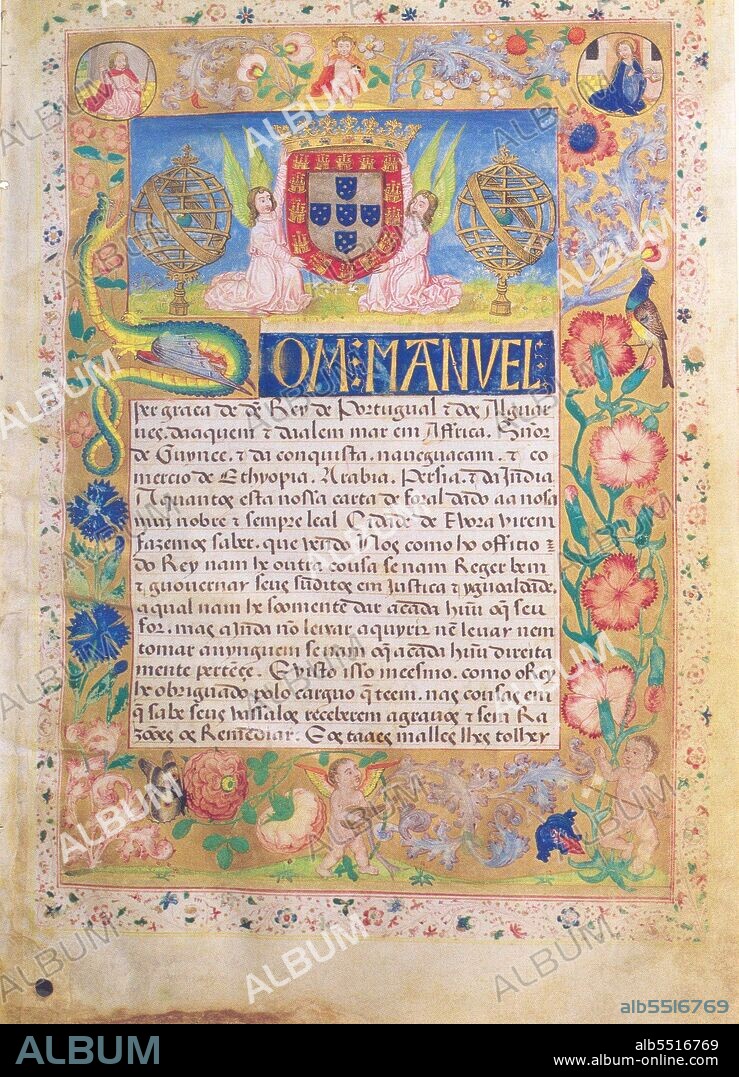 DOM: MANVEL:
per graca de ds Rey de Portugual & dos Alguar
ves. daaquem & daalem mar em Affrica. Snor
de Guynee. & da conquista. naueguacam. & co
mercio de Ethyopia. Arabia. Persia. & da India
A quantos esta nossa carta de foral dado aa nosa
mui nobre & sempre leal Cidade de Euora virem
fazemos saber. que vendo Nos como ho officio
do Rey nam he outra cousa se nam Reger bem
& guouernar seus suditos em Justica & ygualdade.
a qual nam he soomente dar a cada huu o q seu
for. mas ajnda no leixar aquyrir ne leuar nem
tomar a nynguem se nam o q a cada huu direita
mente pertençe. E visto isso meesmo. como o Rey
he obriguado polo carguo q teem. nas cousas em
q sabe seus vassalos receberem agrauos & sem Ra
zooes os Remediar. E os taaes malles lhes tolher
ALBUM
alb5516769
ALBUM
alb5516769
www.album-online.com